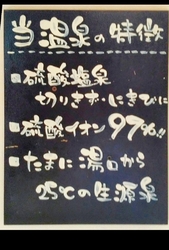 当温泉の特徴
■硫酸塩泉
切りきず・にきびに
■硫酸イオン97%!!
■たまに湯口から
25℃の生源泉